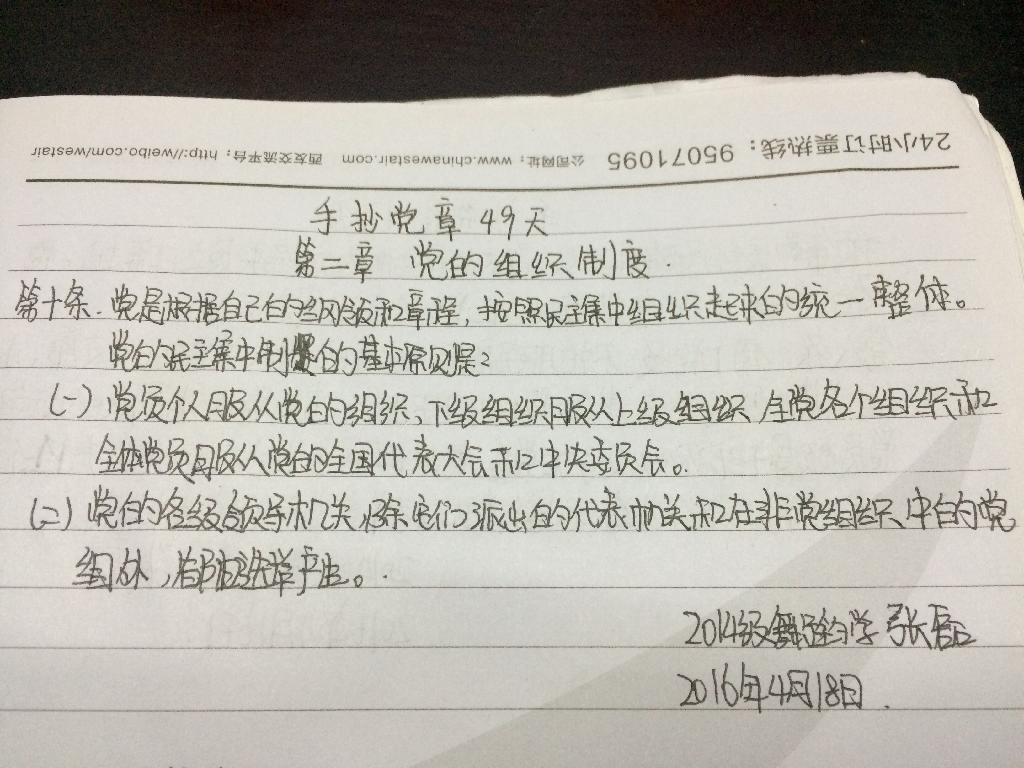 24小时订票热线：95071095 公司网址：www.chinawestair.com 西友交流平台：http://weibo.com/westair
手抄党章49天
第二章 党的组织制度.
第十条.党是根据自己的纲领和章程，按照民主集中组织起来的统一整体。
党的民主集中制的基本原则是：
(一)党员个人服从党的组织，下级组织服从上级组织，全党各个组织和
全体党员服从党的全国代表大会和中央委员会。
(二)党的各级领导机关，除它们派出的代表机关和在非党组织中的党
组外，都由选举产生。
2014级舞蹈学 张
2016年4月18日.